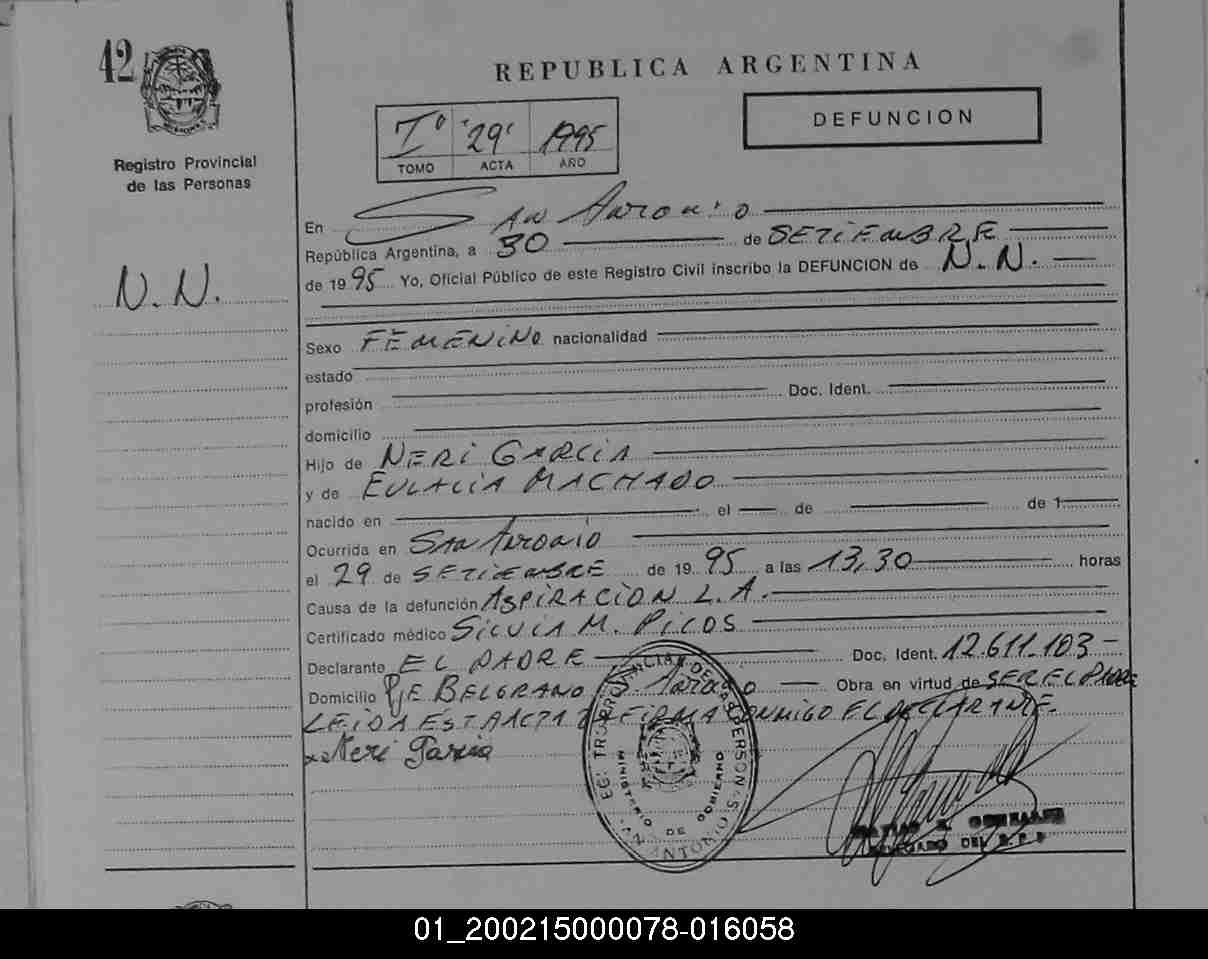 42
REPUBLICA ARGENTINA
Iº "29" 1995
TOMO ACTA AÑO
DEFUNCION
Registro Provincial
de las Personas
N.N.
En San Antonio
República Argentina, a 30 de SETIEMBRE
de 1995 Yo, Oficial Público de este Registro Civil inscribo la DEFUNCION de N.N.
Sexo FEMENINO nacionalidad
estado
profesión Doc. Ident.
domicilio
Hijo de NERI GARCIA
y de EULALIA MACHADO
nacido en el de de 1
Ocurrida en San Antonio
el 29 de SETIEMBRE de 1995 a las 13,30 horas
Causa de la defunción ASPIRACION L.A.
Certificado médico SILVIA M. PICOS
Declarante EL PADRE Doc. Ident. 12.611.103
Domicilio Pje BELGRANO S. Antonio Obra en virtud de SER EL PADRE
LEIDA ESTA ACTA FIRMA CONMIGO EL DECLARANTE.
Neri Garcia
PROVINCIAL DE LAS PERSONAS
MINISTERIO DE GOBIERNO
SAN ANTONIO
DELEGADO DEL R.P.P.
01_200215000078-016058